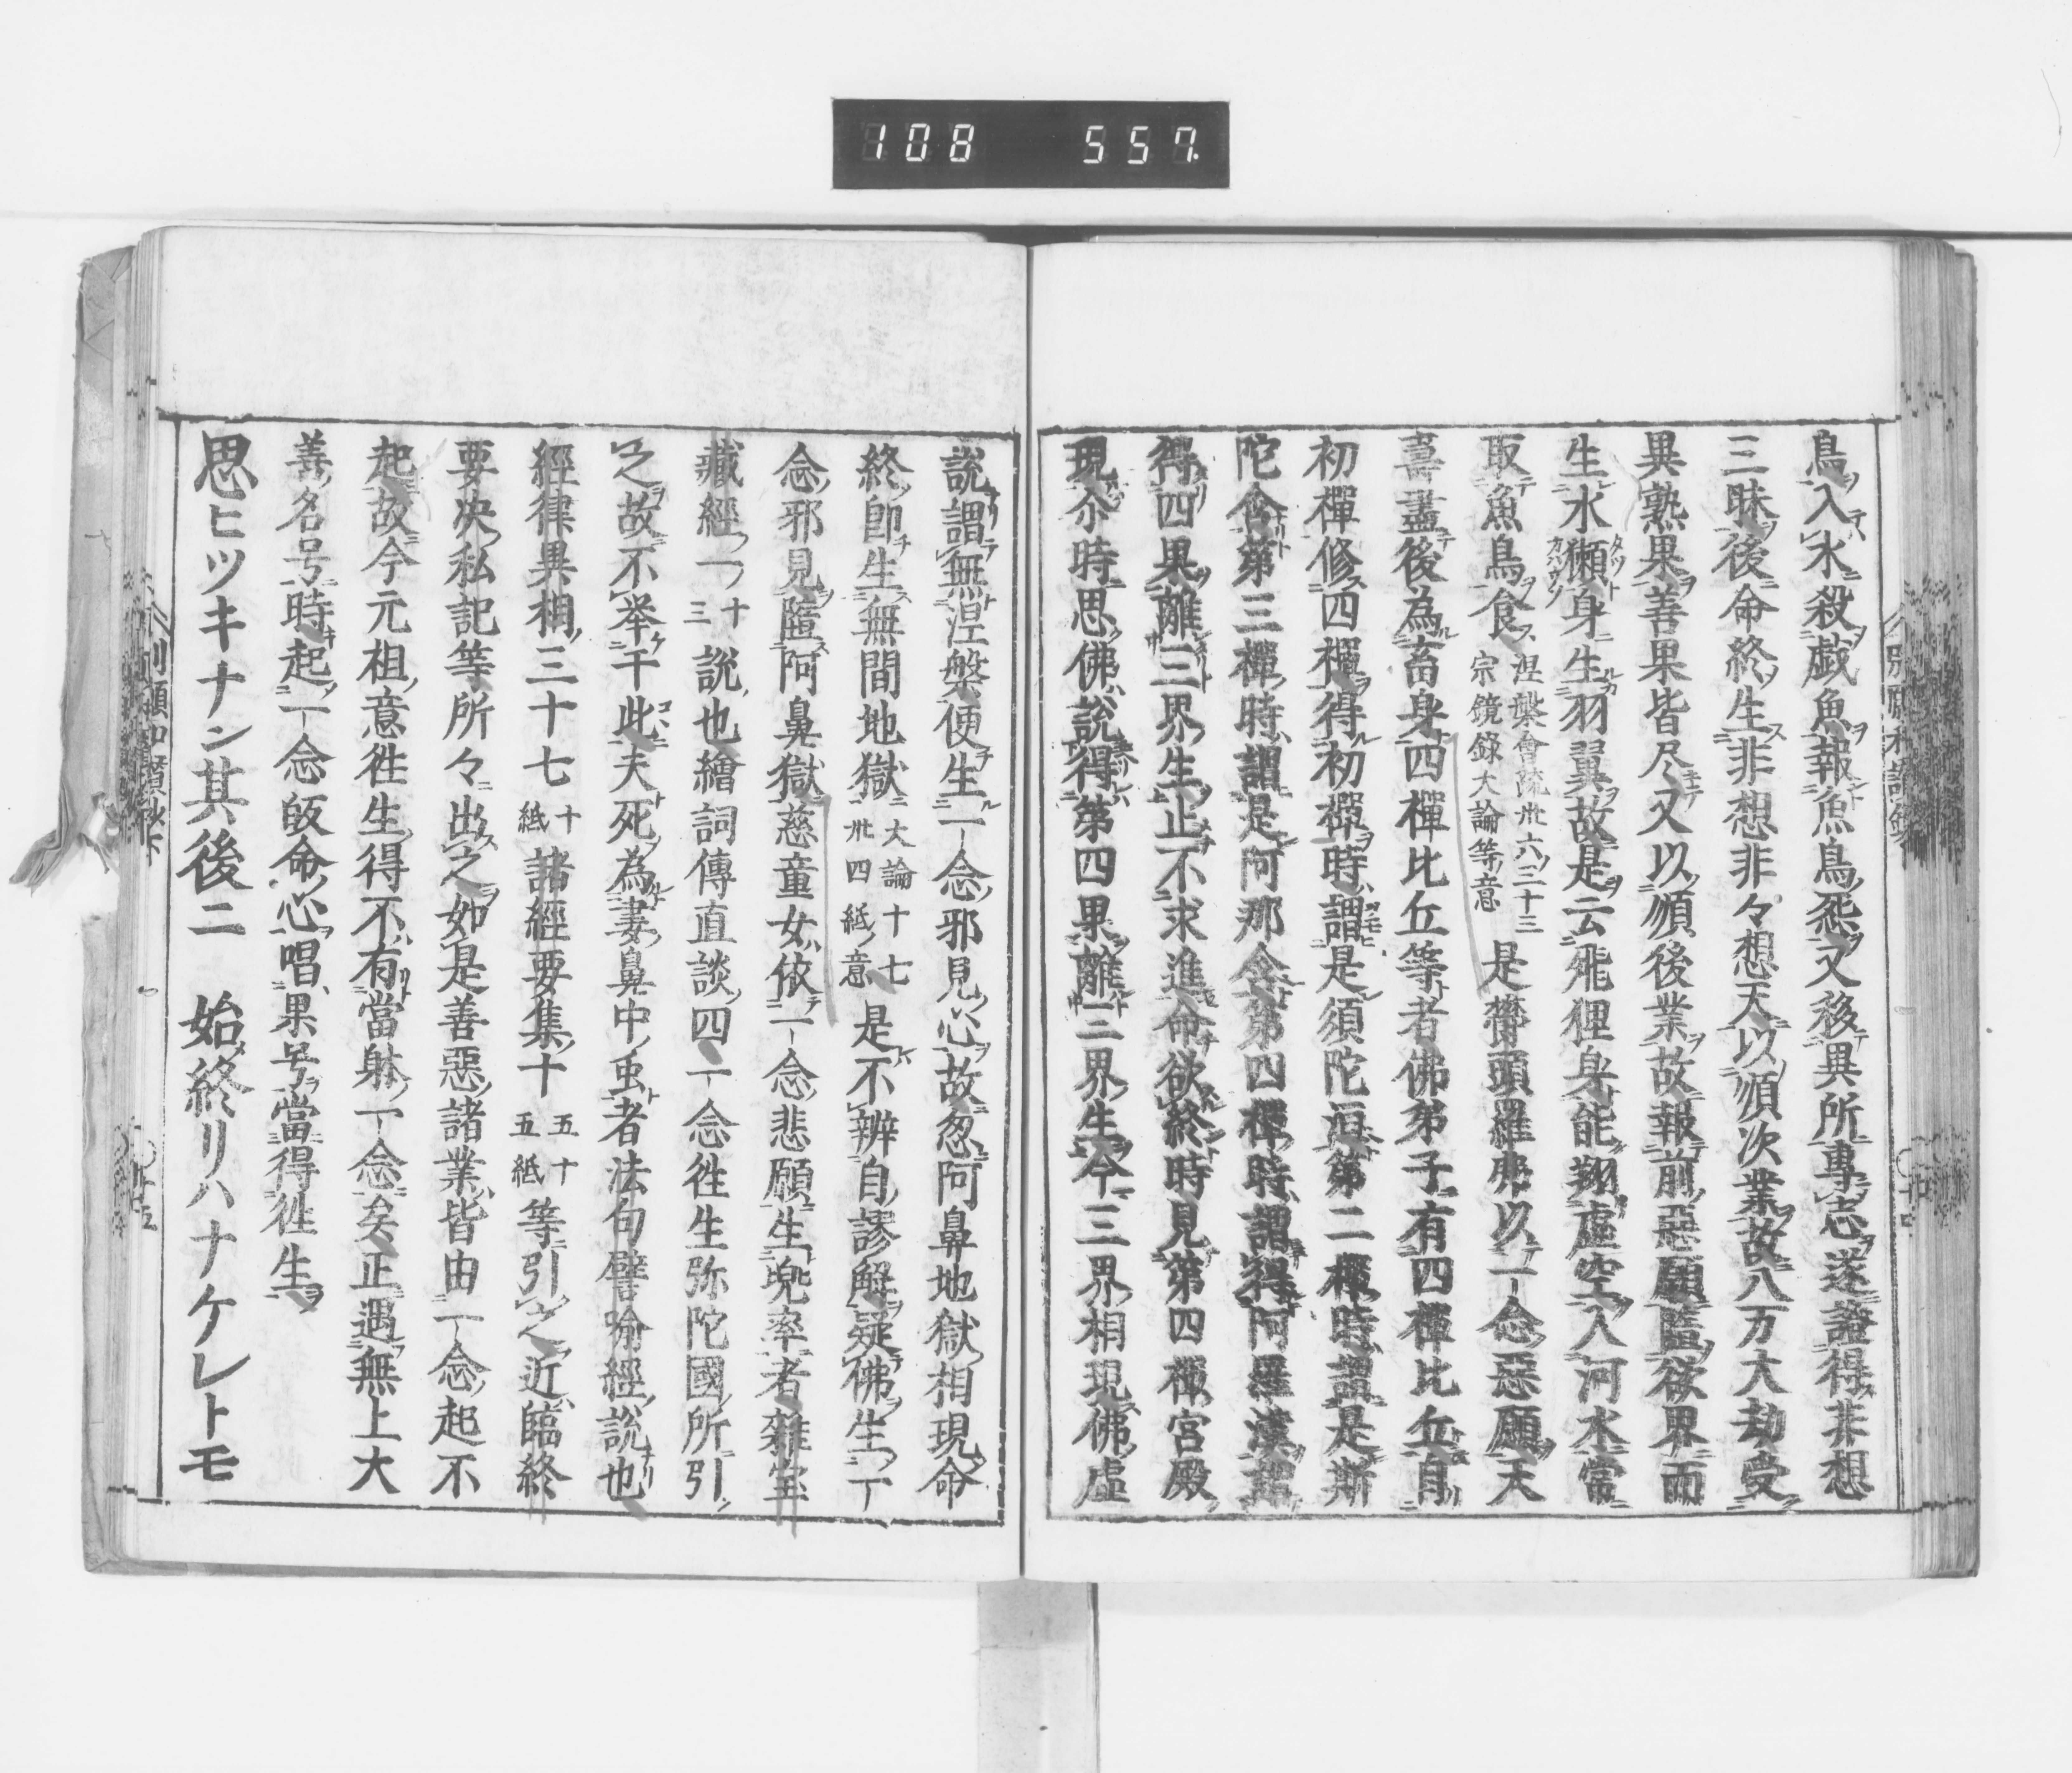 108 557
鳥入水殺戯魚報魚鳥怨又移異所専志遂證得非想
三昧後命終生非想非々想天以順次業故八万大劫受
異熟果善果皆尽又以順後業故報前惡願墮欲界而
生水獺身生羽翼故是云飛狸身能翔虚空入河水常
取魚鳥食涅槃會疏卅六二十三宗鏡錄大論等意是欝頭羅弗以一念惡願天
壽盡後為畜身四禪比丘等者佛弟子有四禪比丘自
初禪修四禪得初禪時謂是須陀洹第二禪時謂是斯
陀含第三禪時謂是阿那含第四禪時謂得阿羅漢
得四果離三界生止不求進命欲終時見第四禪宮殿
現尒時思佛說得第四果離三界生今三界相現佛虚
說謂無涅槃便生一念邪見心故忽阿鼻地獄相現命
終即生無間地獄大論十七卅四紙意是不辨自謬解疑佛生一
念邪見墮阿鼻獄慈童女依一念悲願生兜率者雜宝
藏經一十三說也繪詞傳直談四一念徃生弥陀國所引
之故不举干此夫死為妻鼻中虫者法句譬喻經說也
經律異相三十七十紙諸經要集十五十五紙等引之近臨終
要決私記等所々出之如是善惡諸業皆由一念起不
起故今元祖意徃生得不有當躰一念矣正遇無上大
善名号時起一念皈命心唱果号當得徃生
思ヒツキナン其後ニ 始終リハナケレトモ